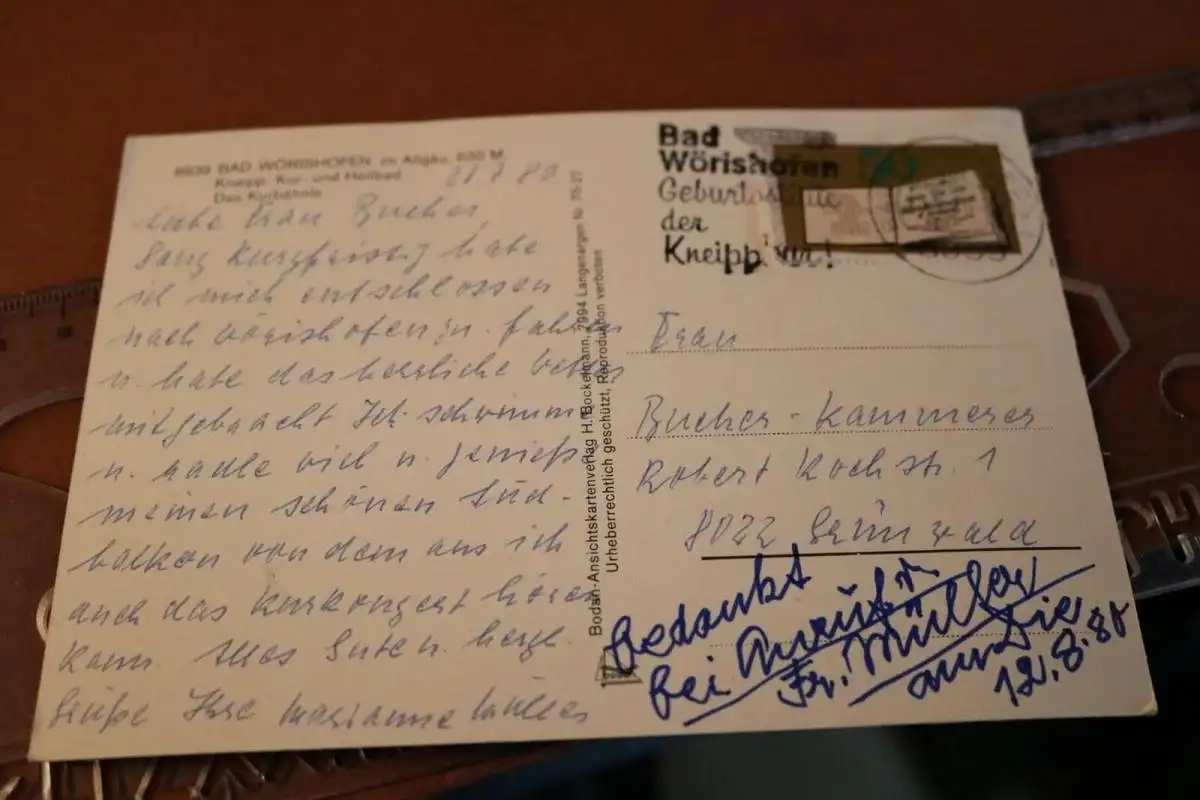 8939 BAD WÖRISHOFEN im Allgäu, 630 M
Kneipp, Kur- und Heilbad
Das Kurbähnle
80
Liebe Frau Bucher,
Ganz kurzfristig habe
ich mich entschlossen
nach Wörishofen zu fahren
u. habe das herrliche Wetter
mitgebracht Ich schwimme
u. radle viel u. genieße
meinen schönen Süd-
balkon von dem aus ich
auch das Kurkonzert hören
kann. Alles Gute u. herzl.
Grüße Ihre Marianne Müller
Bodan-Ansichtskartenverlag H. Bockelmann, 7994 Langenargen Nr.
Urheberrechtlich geschützt, Reproduktion verboten
Bad
Wörishofen
Geburtsstätte
der
Kneippkur!
Frau
Bucher-Kammerer
Robert Koch str. 1
8022 Grünwald
bedankt
bei Anruf
Fr. Müller
am Die
12.8.80